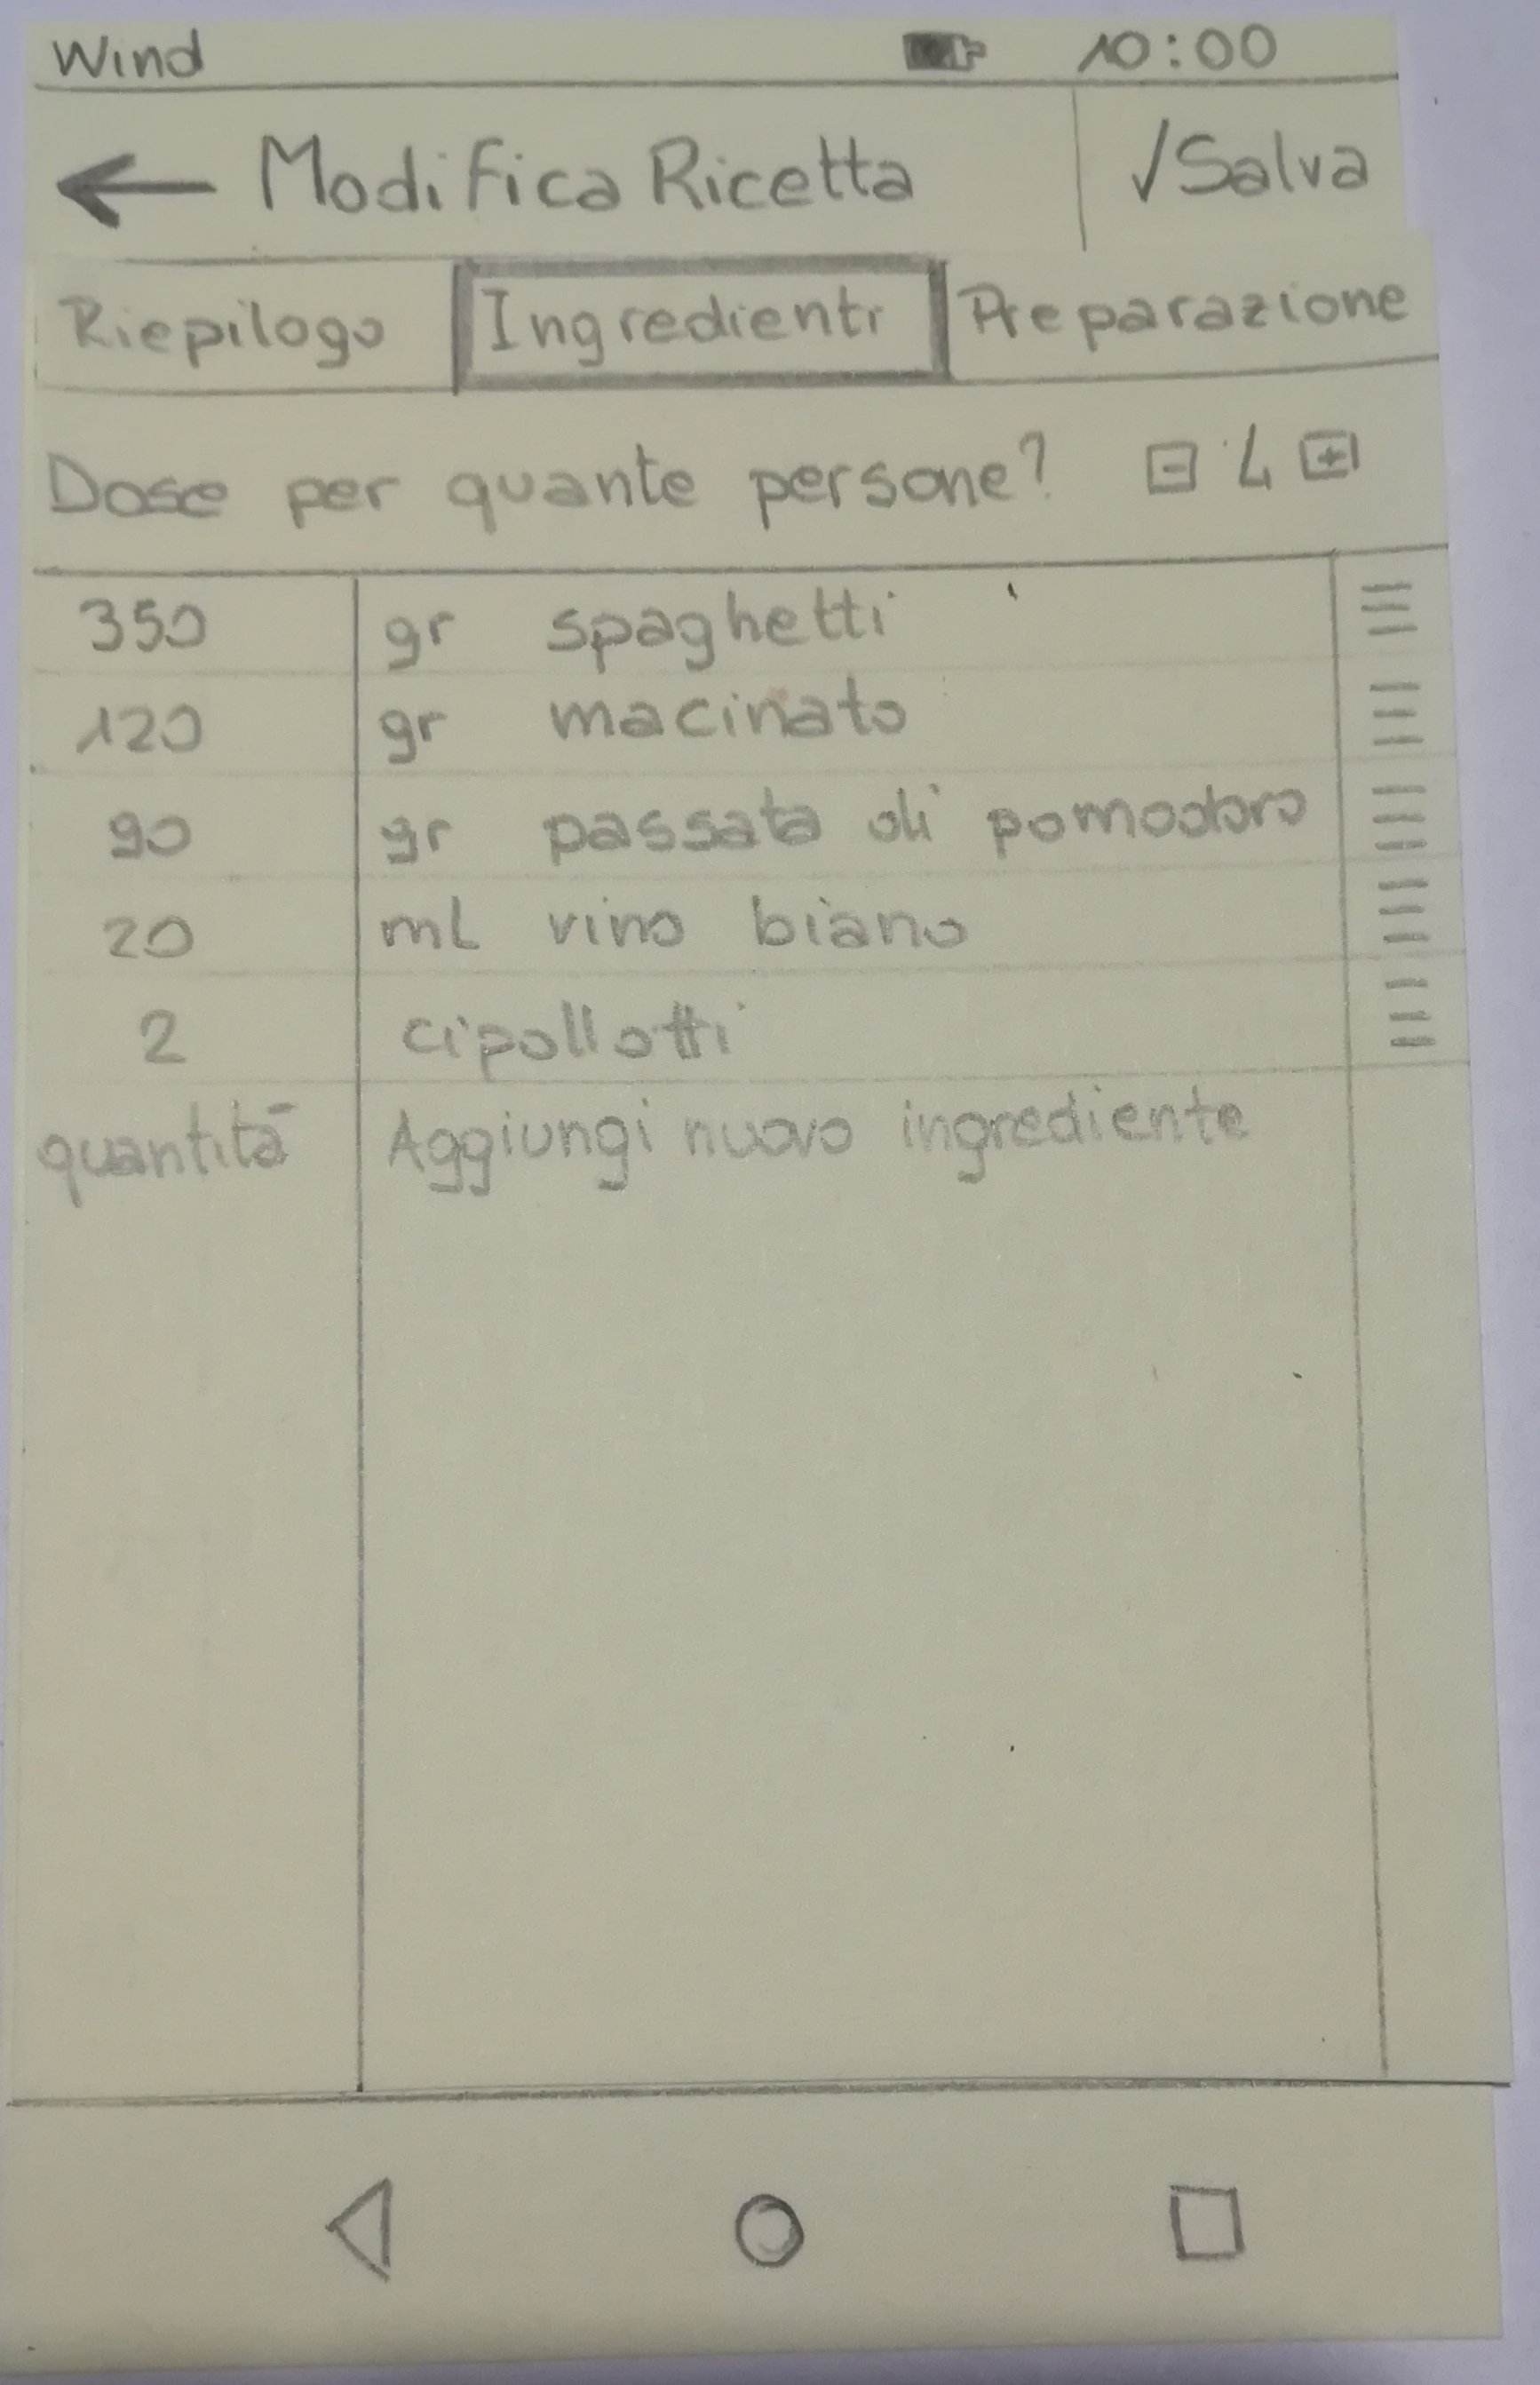 Wind 10:00
← Modifica Ricetta √Salva
Riepilogo Ingredienti Preparazione
Dose per quante persone? - 4 +
350 gr spaghetti
120 gr macinato
90 gr passata di pomodoro
20 ml vino biano
2 cipollotti
quantità Aggiungi nuovo ingrediente